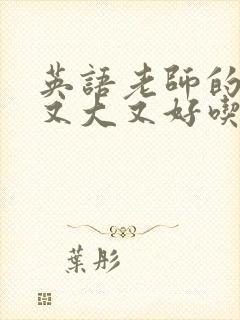 英語老師的
又大又好喫
葉彤